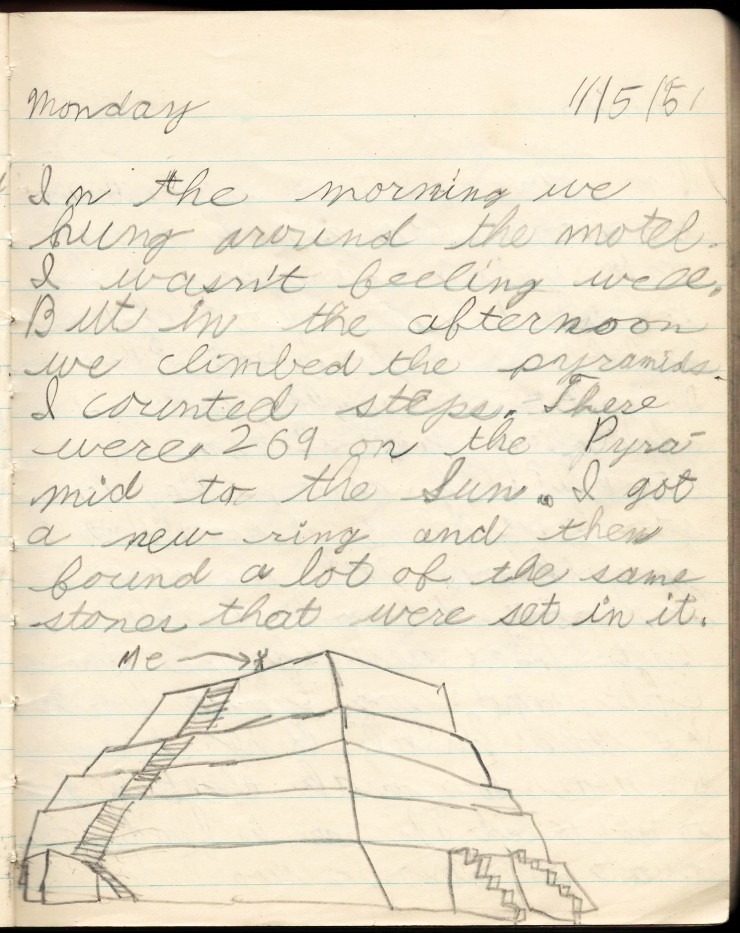 Monday 11/5/51
In the morning we
hung around the motel.
I wasn't feeling well.
But in the afternoon
we climbed the pyramids.
I counted steps. There
were 269 on the Pyra-
mid to the Sun. I got
a new ring and then
found a lot of the same
stones that were set in it.
Me